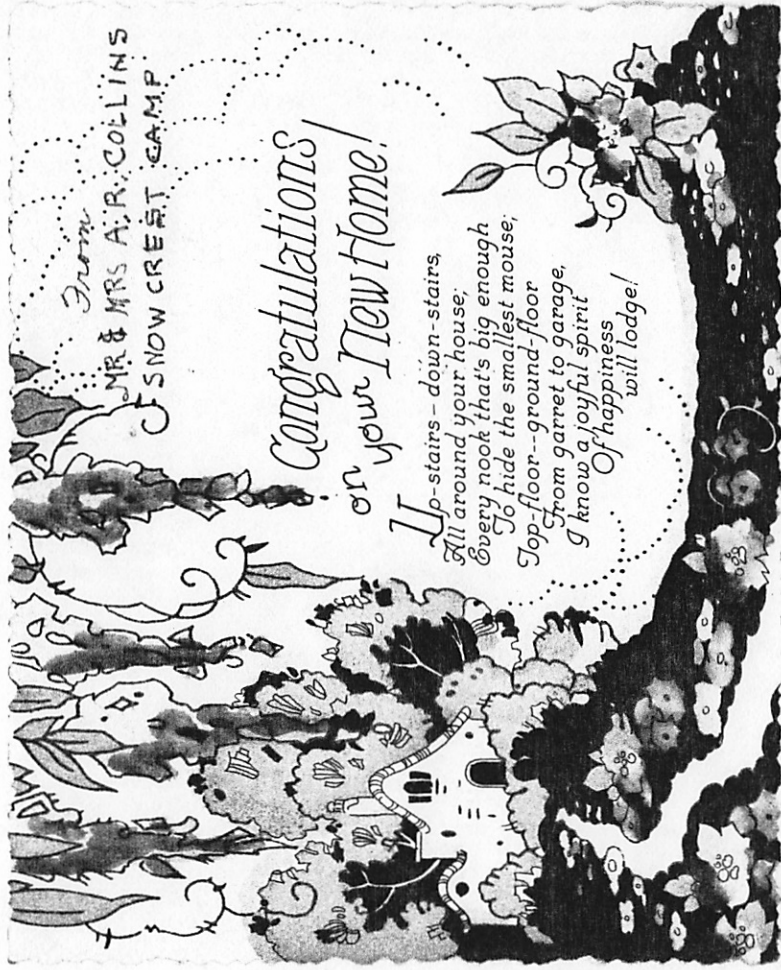 From
MR & MRS A.R. COLLINS
SNOW CREST CAMP
Congratulations
on your New Home!
Up-stairs - down-stairs,
All around your house;
Every nook that's big enough
To hide the smallest mouse;
Top-floor--ground-floor
From garret to garage,
I know a joyful spirit
Of happiness
will lodge!